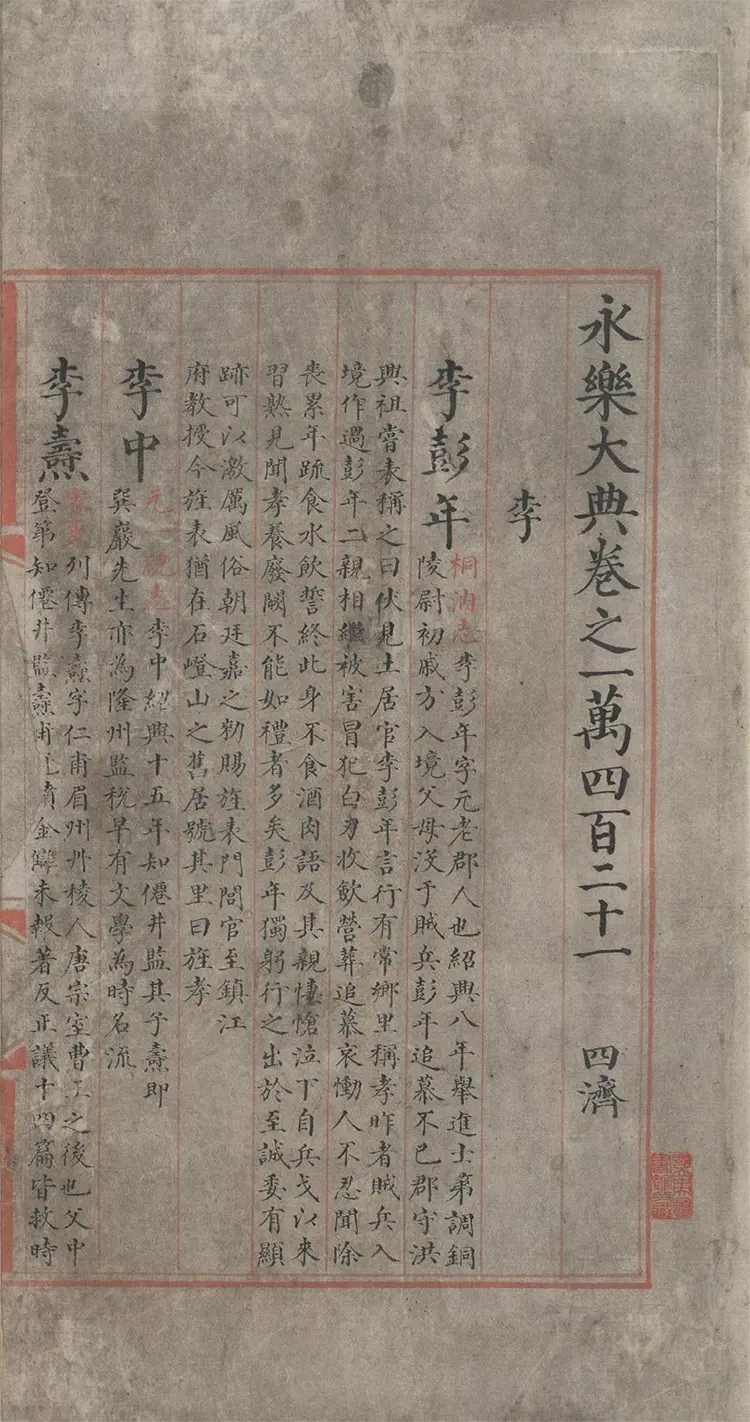 永樂大典卷之一萬四百二十一 四濟
李
李彭年 桐汭志李彭年字元老郡人也紹興八年舉進士第調銅
陵尉初戚方入境父母沒于賊兵彭年追慕不已郡守洪
興祖嘗表稱之曰伏見土居官李彭年言行有常鄉里稱孝昨者賊兵入
境作過彭年二親相繼被害冒犯白刃收斂營葬追慕哀慟人不忍聞除
喪累年疏食水飲誓終此身不食酒肉語及其親悽愴泣下自兵戈以來
習熟見聞孝養廢闕不能如禮者多矣彭年獨躬行之出於至誠委有顯
跡可以激厲風俗朝廷嘉之勑賜旌表門閭官至鎮江
府教授今旌表猶在石嶝山之舊居號其里曰旌孝
李中 元一統志李中紹興十五年知僊井監其子燾即
巽巖先生亦為隆州監稅早有文學為時名流
李燾 宋史列傳李燾字仁甫眉州丹稜人唐宗室曹王之後也父中
登第知僊井監燾甫冠憤金讎未報著反正議十四篇皆救時